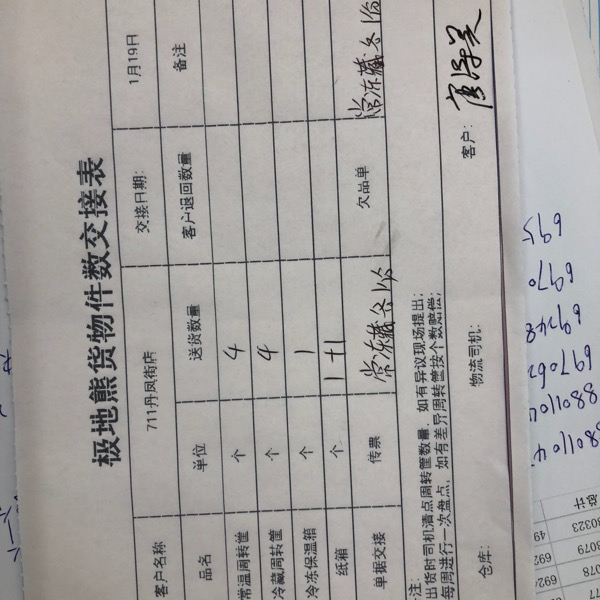 极地熊货物件数交接表
客户名称 711丹凤街店 交接日期: 1月19日
品名 单位 送货数量 客户退回数量 备注
常温周转筐 个 4
冷藏周转筐 个 4
冷冻保温箱 个 1
纸箱 个 1+1
单据交接 传票 常冻藏各1份 欠品单 常冻藏各1份
注:
出货时司机清点周转筐数量，如有异议现场提出;
每周进行一次盘点，如有差异周转筐按个数赔偿;
仓库: 物流司机: 客户:
695
6970
69248
69706
总计
80323
3079
078
77
49
692